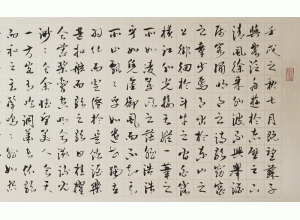 壬戌之秋七月既望蘇子
與客泛舟遊於赤壁之下
清風徐來水波不興舉酒
屬客誦明月之詩歌窈窕
之章少焉月出於東山之
上徘徊於斗牛之間白露
橫江水光接天縱一葦之
所如凌萬頃之茫然浩浩
乎如馮虛御風而不知其
所止飄飄乎如遺世獨立
羽化而登仙於是飲酒樂
甚扣舷而歌之歌曰桂棹
兮蘭槳擊空明兮泝流光
渺渺兮予懷望美人兮天
一方客有吹洞簫者倚歌
而和之其聲嗚嗚然